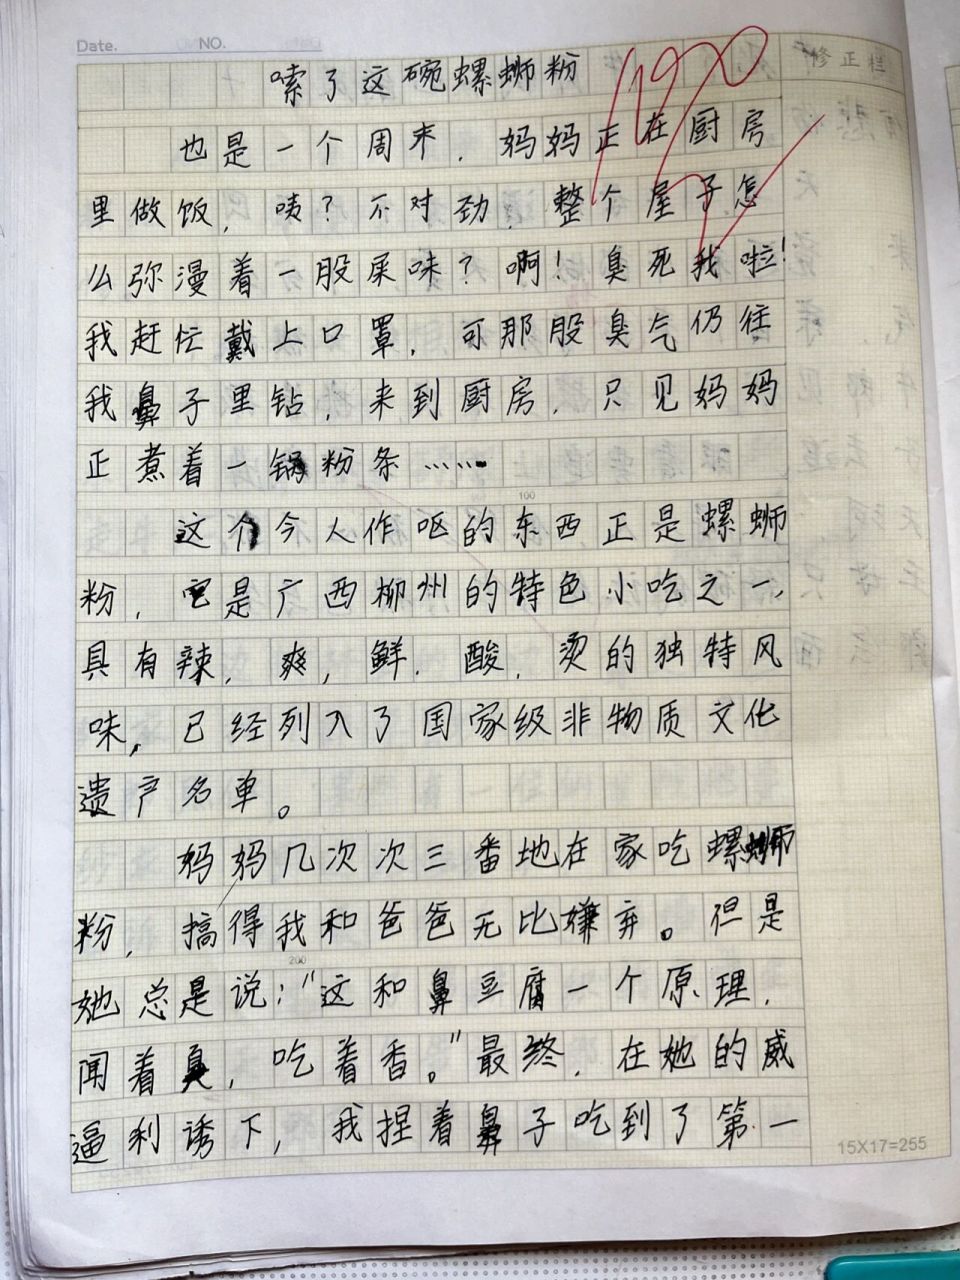 Date.
NO.
嗦了这碗螺蛳粉
修正栏
也是一个周末，妈妈正在厨房
里做饭，咦？不对劲，整个屋子怎
么弥漫着一股屎味？啊！臭死我啦！
我赶忙戴上口罩，可那股臭气仍往
我鼻子里钻，来到厨房，只见妈妈
正煮着一锅粉条……
100
这个令人作呕的东西正是螺蛳
粉，它是广西柳州的特色小吃之一，
具有辣，爽，鲜，酸，烫的独特风
味，已经列入了国家级非物质文化
遗产名单。
妈妈几次次三番地在家吃螺蛳
粉，搞得我和爸爸无比嫌弃。但是
200
她总是说：“这和鼻豆腐一个原理，
闻着臭，吃着香。”最终，在她的威
逼利诱下，我捏着鼻子吃到了第一
15X17=255